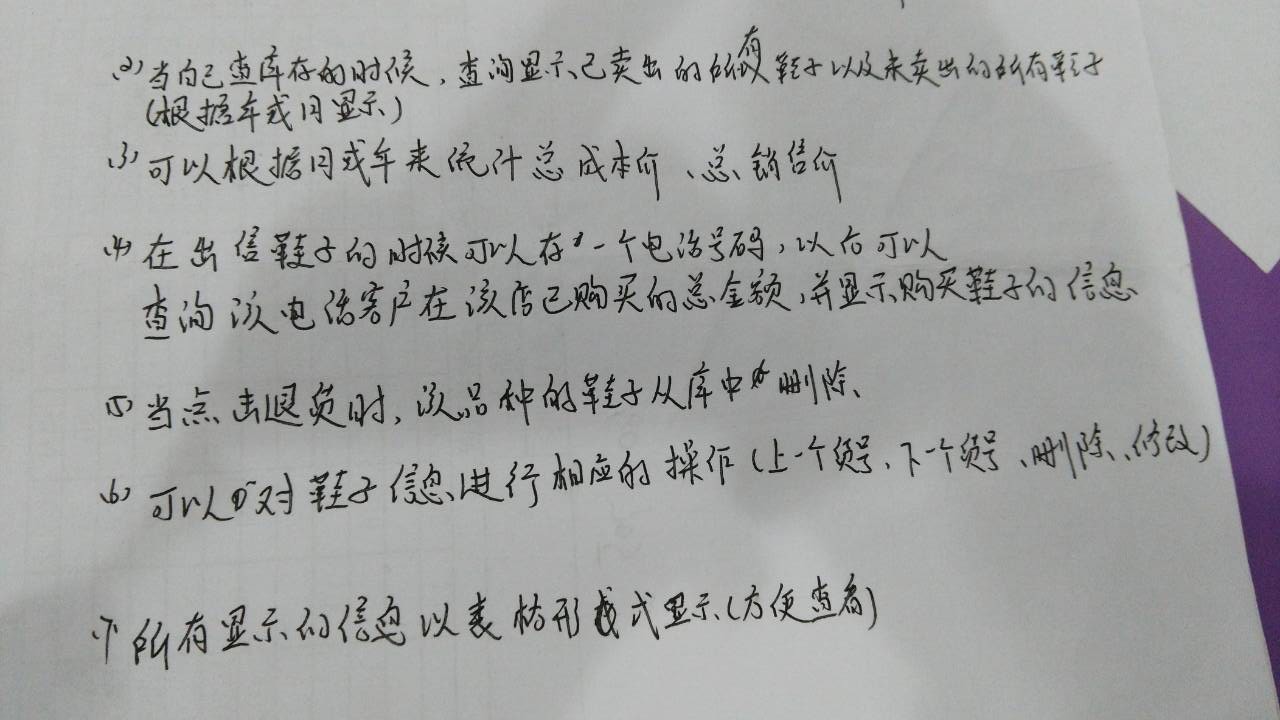 (2) 当自己查库存的时候,查询显示已卖出的所有鞋子以及未卖出的所有鞋子
(根据年或月显示)
(3) 可以根据月或年来统计总成本价、总销售价
(4) 在出售鞋子的时候可以存一个电话号码,以后可以
查询该电话客户在该店已购买的总金额,并显示购买鞋子的信息
(5) 当点击退货时,该品种的鞋子从库中删除、
(6) 可以对鞋子信息进行相应的操作(上一个货号、下一个货号、删除、修改)
(7) 所有显示的信息以表格形式显示(方便查看)